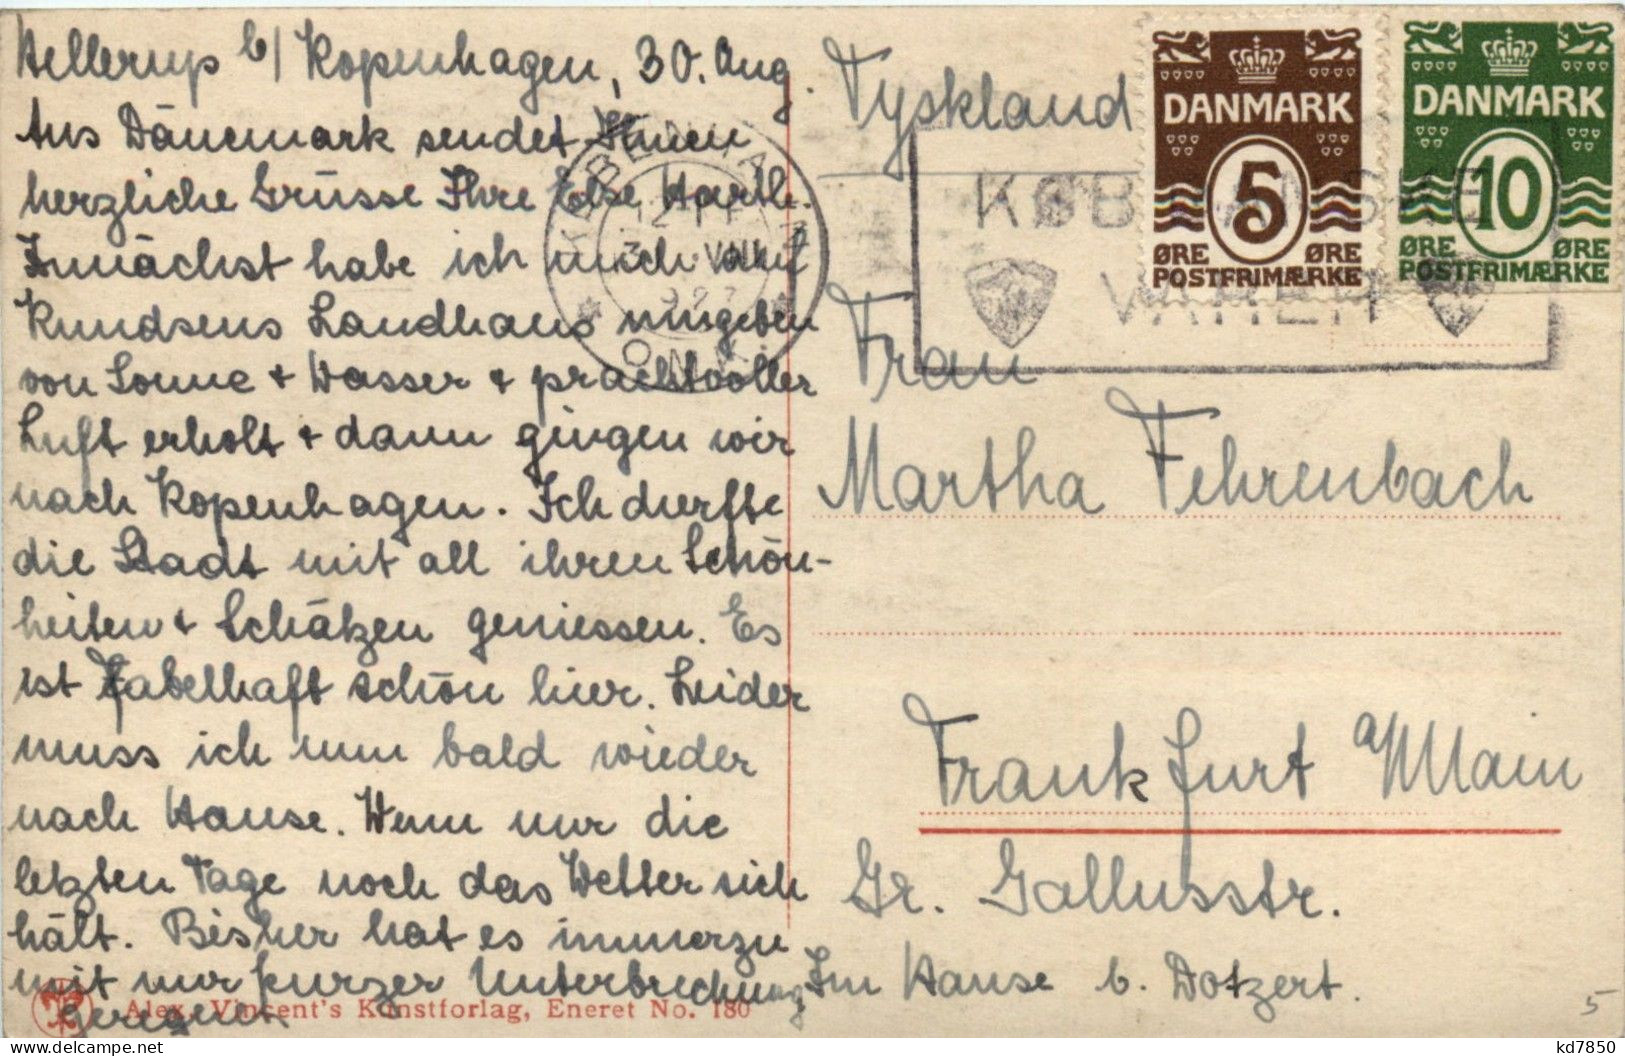 Hellerup b/ Kopenhagen, 30. Aug.
Aus Dänemark sendet Ihnen
herzliche Grüsse Ihre Else Hartl.
Zunächst habe ich mich auf
Knudsens Landhaus umgeben
von Sonne + Wasser + prachtvoller
Luft erholt + dann gingen wir
nach Kopenhagen. Ich durfte
die Stadt mit all ihren Schön-
heiten + Schätzen geniessen. Es
ist fabelhaft schön hier. Leider
muss ich nun bald wieder
nach Hause. Wenn nur die
letzten Tage noch das Wetter sich
hält. Bisher hat es immerzu
mit nur kurzer Unterbrechung
geregnet
Alex. Vincent's Kunstforlag, Eneret No. 180
Tyskland
DANMARK
5
ØRE ØRE
POSTFRIMÆRKE
DANMARK
10
ØRE ØRE
POSTFRIMÆRKE
KØBENHAVN
OMK.
VARER
Frau
Martha Fehrenbach
Frankfurt a/Main
Gr. Gallusstr.
Im Hause b. Dotzert.
5
kd7850